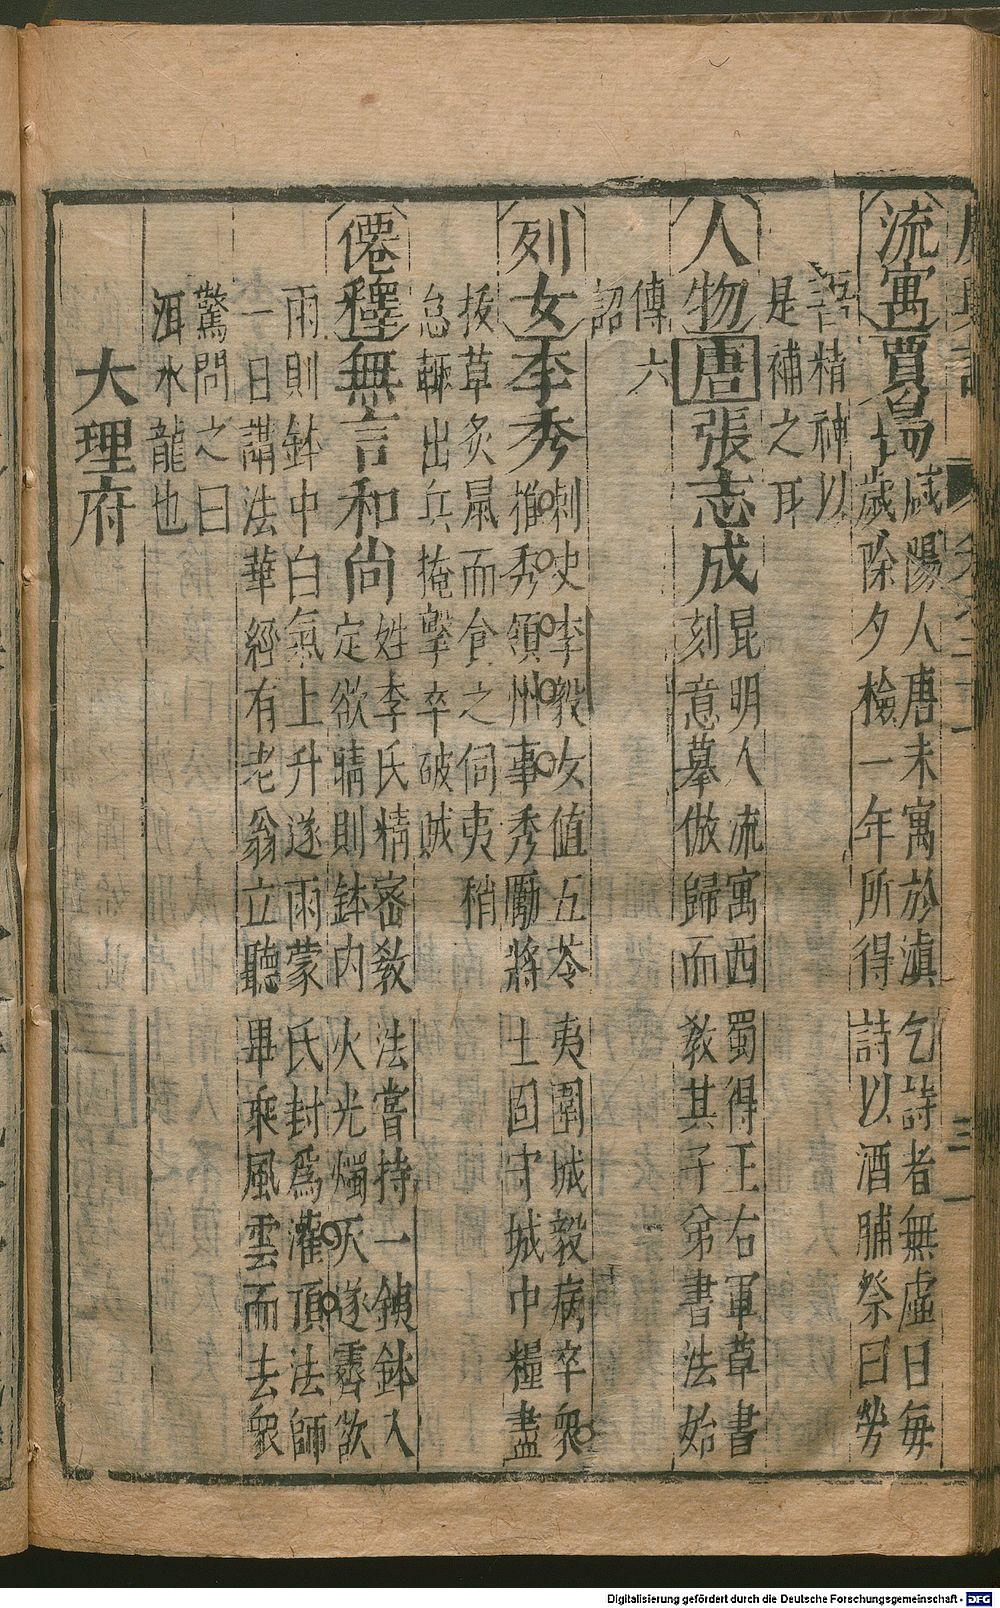 流寓賈島咸陽人唐末寓於滇乞詩者無虛日每
歲除夕檢一年所得詩以酒脯祭曰勞
吾精神以
是補之耳
人物唐張志成昆明人流寓西蜀得王右軍草書
刻意摹倣歸而教其子弟書法始
傳六
詔
列女李秀刺史李毅女值五苓夷圍城毅病卒衆
推秀領州事秀勵將士固守城中糧盡
拔草炙鼠而食之伺夷稍
怠輒出兵掩擊卒破賊
僊釋無言和尚姓李氏精密教法嘗持一銕鉢入
定欲晴則鉢內火光燭天遂霽欲
雨則鉢中白氣上升遂雨蒙氏封爲灌頂法師
一日講法華經有老翁立聽畢乘風雲而去衆
驚問之曰
洱水龍也
大理府
三
Digitalisierung gefördert durch die Deutsche Forschungsgemeinschaft - DFG